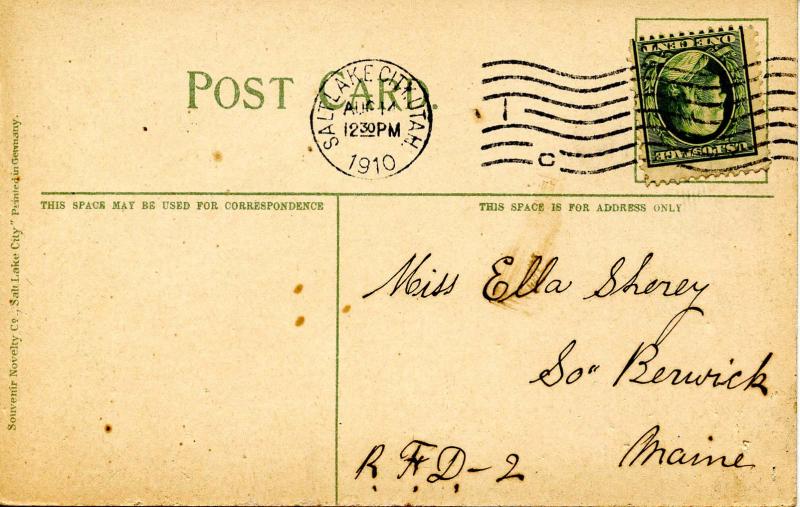 POST CARD.
SALT LAKE CITY, UTAH.
AUG
12 30 PM
1910
1
C
ONE CENT
U.S. POSTAGE
THIS SPACE MAY BE USED FOR CORRESPONDENCE
THIS SPACE IS FOR ADDRESS ONLY
Miss Ella Shorey
So" Berwick
Maine
R.F.D-2
Souvenir Novelty Co., Salt Lake City" Printed in Germany.